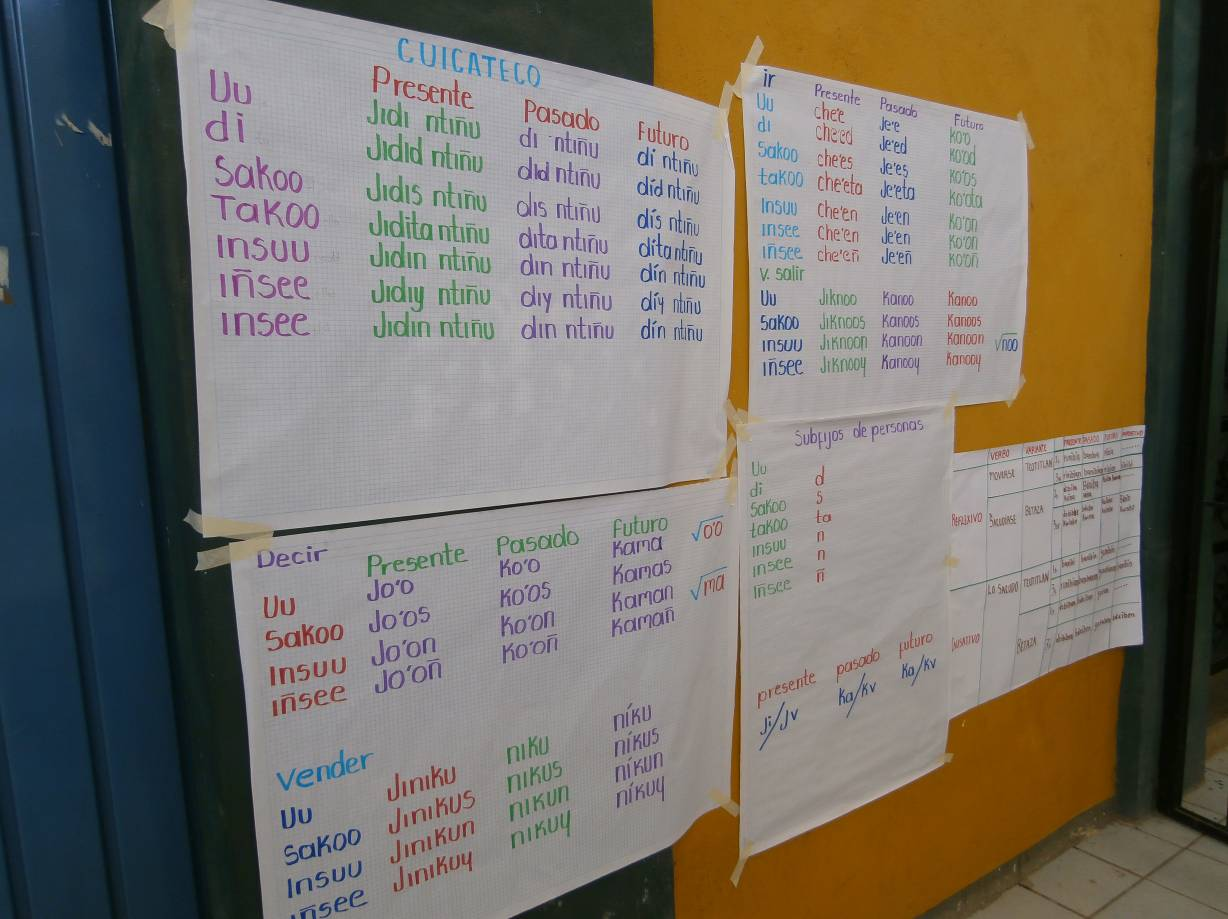 CUICATECO
Presente Pasado Futuro
Uu Jidi ntiñu di ntiñu dí ntiñu
di Jidid ntiñu did ntiñu díd ntiñu
Sakoo Jidis ntiñu dis ntiñu dís ntiñu
Takoo Jidita ntiñu dita ntiñu díta ntiñu
insuu Jidin ntiñu din ntiñu dín ntiñu
iñsee Jidiy ntiñu diy ntiñu díy ntiñu
insee Jidin ntiñu din ntiñu dín ntiñu
ir Presente Pasado Futuro
Uu che'e Je'e ko'o
di che'ed Je'ed ko'od
Sakoo che'es Je'es ko'os
takoo che'eta Je'eta ko'ota
insuu che'en Je'en ko'on
insee che'en Je'en ko'on
iñsee che'eñ Je'eñ ko'oñ
v. salir
Uu Jiknoo Kanoo Kanoo
Sakoo Jiknoos Kanoos Kanoos
insuu Jiknoon Kanoon Kanoon √noo
iñsee Jiknooy Kanooy Kanooy
Decir Presente Pasado Futuro √o'o
Uu Jo'o ko'o Kama
Sakoo Jo'os ko'os Kamas √ma
insuu Jo'on ko'on Kaman
iñsee Jo'oñ ko'oñ Kamañ
Vender
Uu Jiniku niku níku
Sakoo Jinikus nikus níkus
insuu Jinikun nikun níkun
iñsee Jinikuy nikuy níkuy
Subfijos de personas
Uu
di d
Sakoo s
takoo ta
insuu n
insee n
iñsee ñ
presente pasado futuro
Ji/Jv ka/kv ka/kv
VERBO VARIANTE PRESENTE PASADO FUTURO
REFLEXIVO MOVERSE TEOTITLAN
SALUDARSE BETAZA
CAUSATIVO LO SALUDO TEOTITLAN
BETAZA